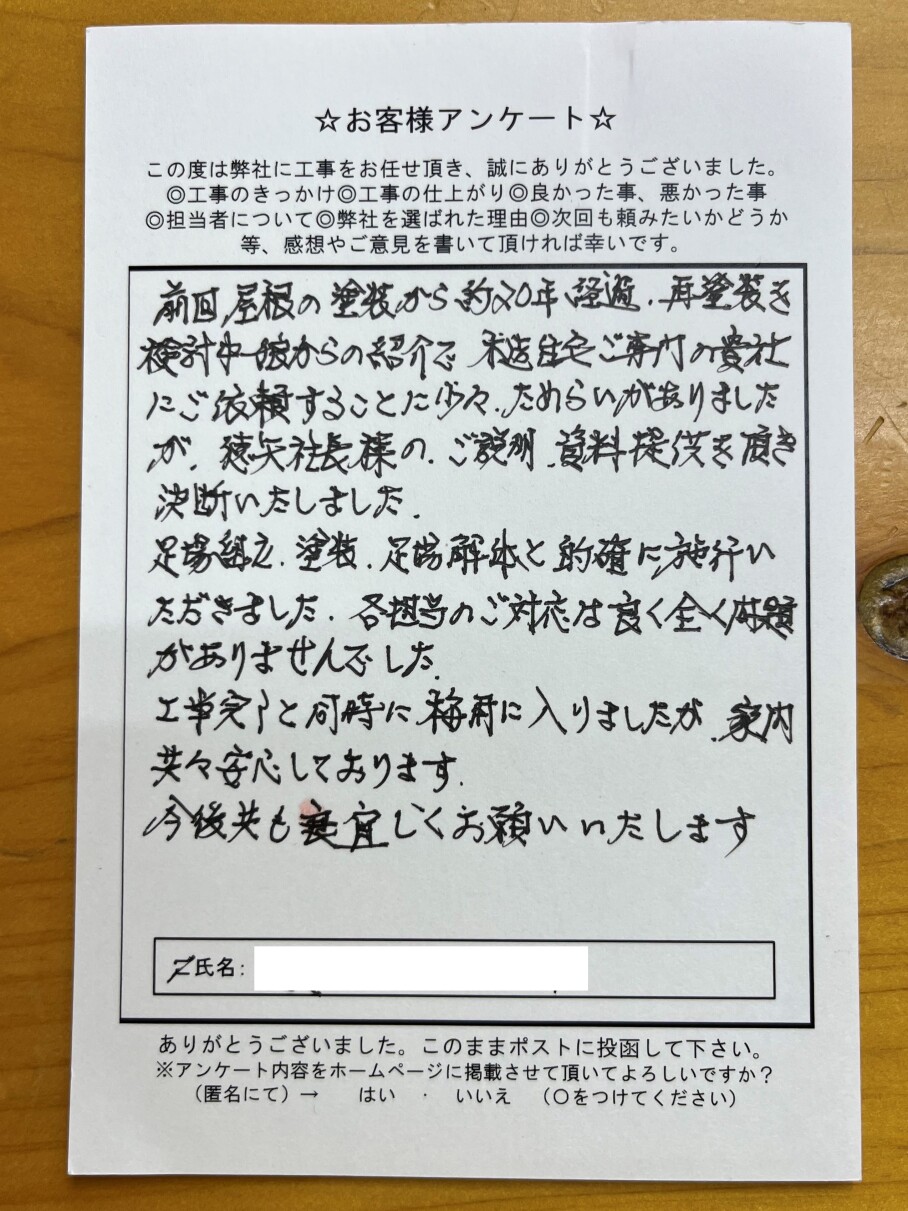 ☆お客様アンケート☆
この度は弊社に工事をお任せ頂き、誠にありがとうございました。
◎工事のきっかけ◎工事の仕上がり◎良かった事、悪かった事
◎担当者について◎弊社を選ばれた理由◎次回も頼みたいかどうか
等、感想やご意見を書いて頂ければ幸いです。
前回屋根の塗装から約20年経過、再塗装を
検討中娘からの紹介で木造住宅ご専門の貴社
にご依頼することに少々、ためらいがありました
が、徳矢社長様の、ご説明、資料提供を頂き
決断いたしました。
足場組立、塗装、足場解体と的確に施行い
ただきました、各担当のご対応は良く全く問題
がありませんでした。
工事完了と同時に梅雨に入りましたが、家内
共々安心しております。
今後共も宜しくお願いいたします
氏名:
ありがとうございました。このままポストに投函して下さい。
※アンケート内容をホームページに掲載させて頂いてよろしいですか？
（匿名にて）→ はい ・ いいえ （○をつけてください）